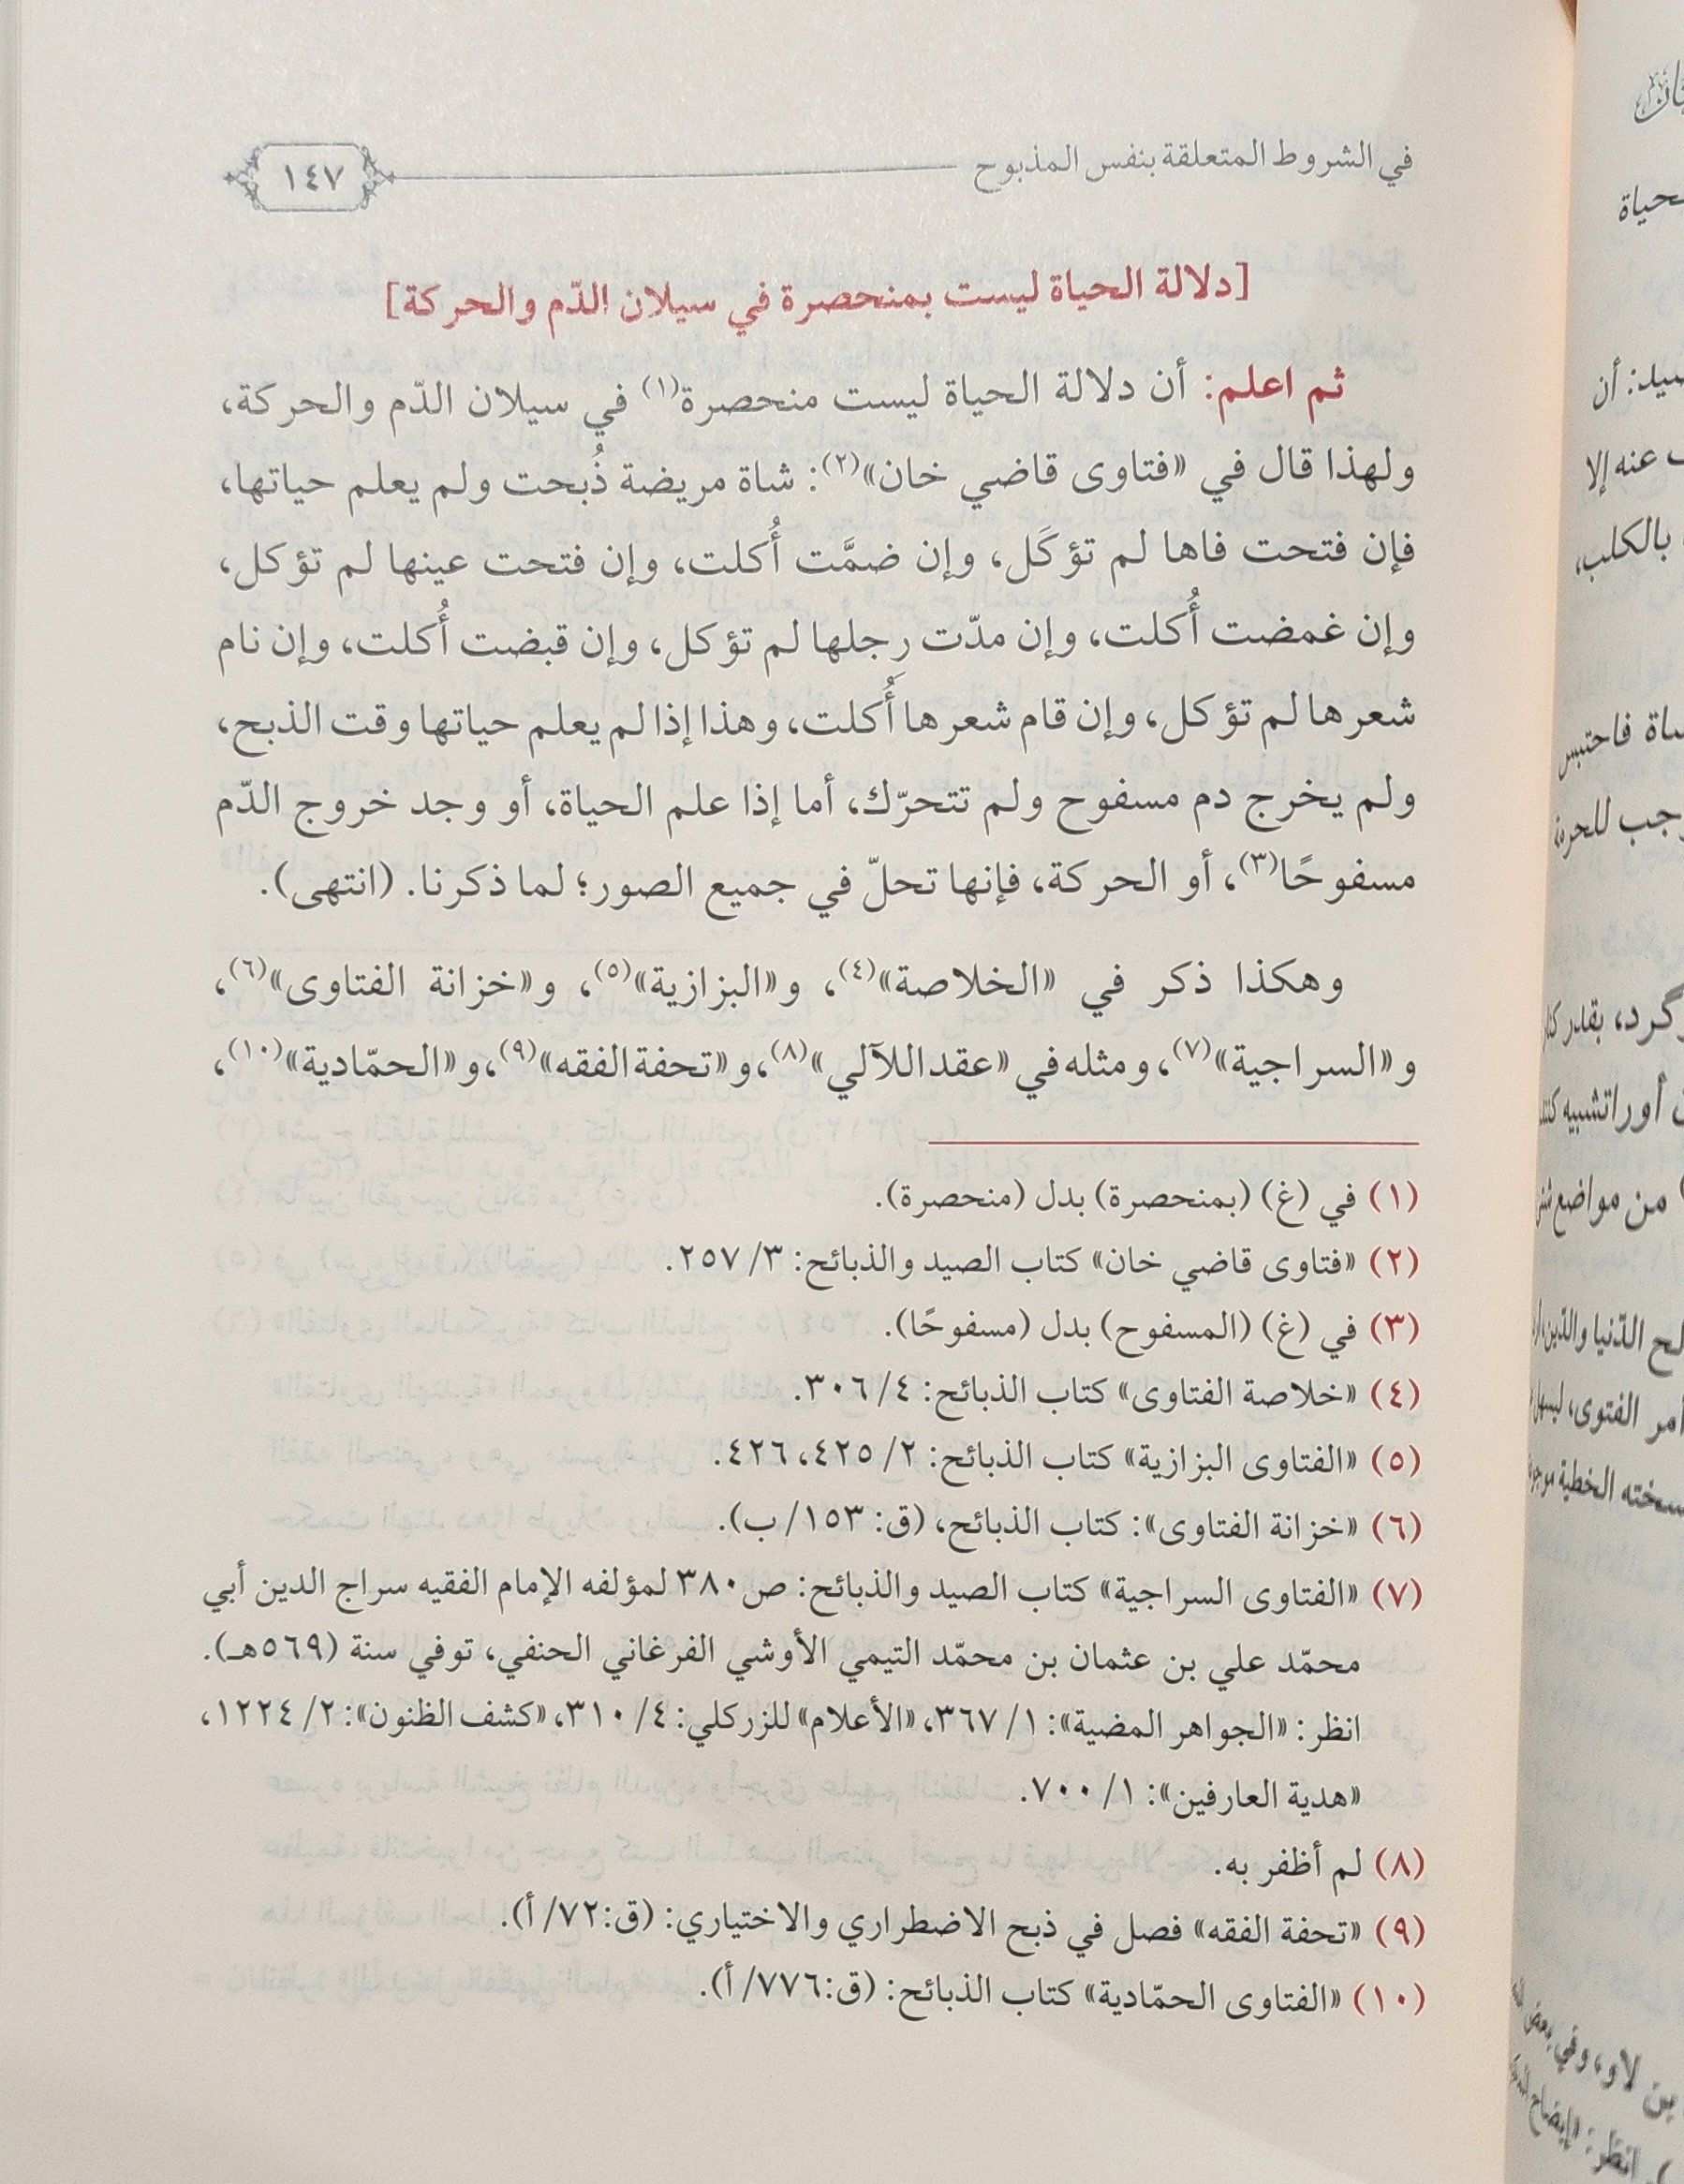 في الشروط المتعلقة بنفس المذبوح ١٤٧
[دلالة الحياة ليست بمنحصرة في سيلان الدّم والحركة]
ثم اعلم: أن دلالة الحياة ليست منحصرة(١) في سيلان الدّم والحركة،
ولهذا قال في «فتاوى قاضي خان»(٢): شاة مريضة ذُبحت ولم يعلم حياتها،
فإن فتحت فاها لم تؤكَل، وإن ضمَّت أُكلت، وإن فتحت عينها لم تؤكل،
وإن غمضت أُكلت، وإن مدّت رِجلها لم تؤكل، وإن قبضت أُكلت، وإن نام
شعرها لم تؤكل، وإن قام شعرها أُكلت، وهذا إذا لم يعلم حياتها وقت الذبح،
ولم يخرج دم مسفوح ولم تتحرّك، أما إذا علم الحياة، أو وجد خروج الدّم
مسفوحًا(٣)، أو الحركة، فإنها تحلّ في جميع الصور؛ لما ذكرنا. (انتهى).
وهكذا ذكر في «الخلاصة»(٤)، و«البزازية»(٥)، و«خزانة الفتاوى»(٦)،
و«السراجية»(٧)، ومثله في «عقد اللآلي»(٨)، و«تحفة الفقه»(٩)، و«الحمّادية»(١٠)،
(١) في (غ) (بمنحصرة) بدل (منحصرة).
(٢) «فتاوى قاضي خان» كتاب الصيد والذبائح: ٣/ ٢٥٧.
(٣) في (غ) (المسفوح) بدل (مسفوحًا).
(٤) «خلاصة الفتاوى» كتاب الذبائح: ٤/ ٣٠٦.
(٥) «الفتاوى البزازية» كتاب الذبائح: ٢/ ٤٢٥، ٤٢٦.
(٦) «خزانة الفتاوى»: كتاب الذبائح، (ق: ١٥٣/ ب).
(٧) «الفتاوى السراجية» كتاب الصيد والذبائح: ص٣٨٠ لمؤلفه الإمام الفقيه سراج الدين أبي
محمّد علي بن عثمان بن محمّد التيمي الأوشي الفرغاني الحنفي، توفي سنة (٥٦٩هـ).
انظر: «الجواهر المضية»: ١/ ٣٦٧، «الأعلام» للزركلي: ٤/ ٣١٠، «كشف الظنون»: ٢/ ١٢٢٤،
«هدية العارفين»: ١/ ٧٠٠.
(٨) لم أظفر به.
(٩) «تحفة الفقه» فصل في ذبح الاضطراري والاختياري: (ق:٧٢/ أ).
(١٠) «الفتاوى الحمّادية» كتاب الذبائح: (ق:٧٧٦/ أ).